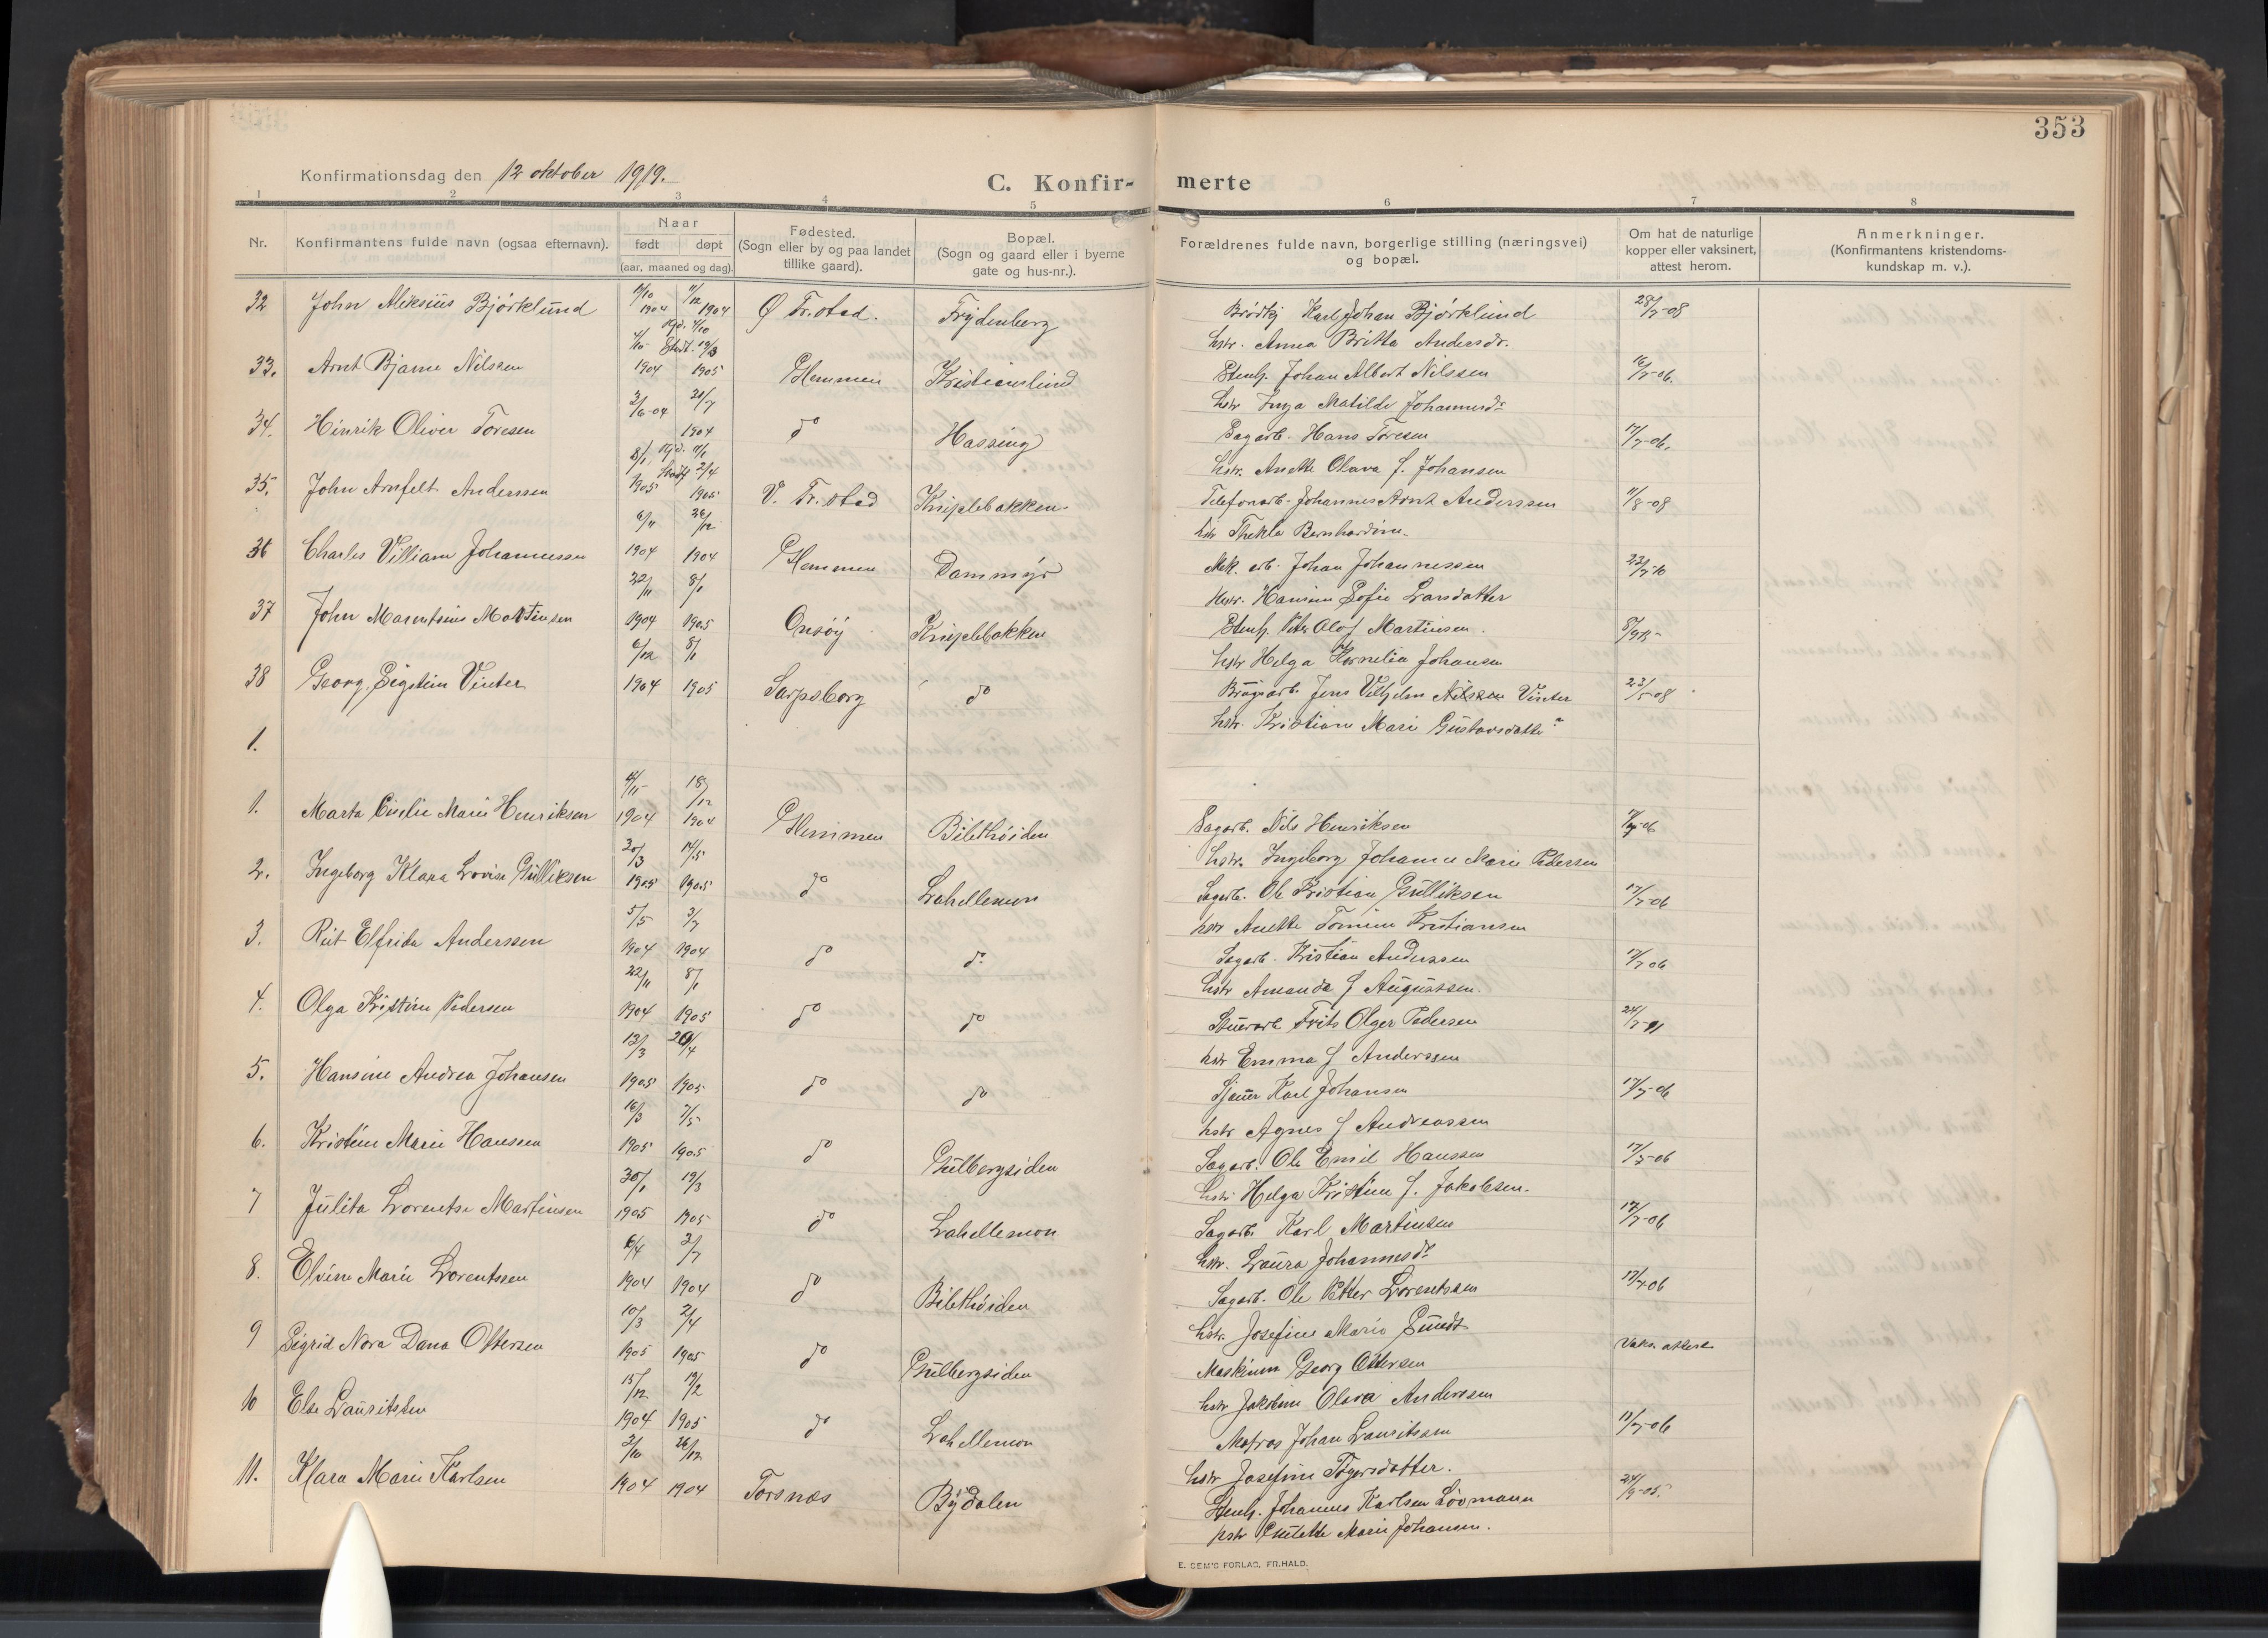 353
Konfirmationsdag den 12 oktober 1919.
C. Konfir- merte
1 2 3 4 5 6 7 8
Nr.
Konfirmantens fulde navn (ogsaa efternavn).
Naar
født døpt
(aar, maaned og dag).
Fødested.
(Sogn eller by og paa landet
tillike gaard).
Bopæl.
(Sogn og gaard eller i byerne
gate og hus-nr.).
Forældrenes fulde navn, borgerlige stilling (næringsvei)
og bopæl.
Om hat de naturlige
kopper eller vaksinert,
attest herom.
Anmerkninger.
(Konfirmantens kristendoms-
kundskap m. v.).
32 John Aleksius Bjørklund 1904 1904 Ø Fr.stad. Frydenberg Karl Johan Bjørklund 28/7-08
hstr. Anna Britta Andersdr.
33. Arnt Bjarne Nilssen 1904 1905 Glemmen Kristianslund Stenh. Johan Albert Nilssen 16/7-06.
hstr Inga Matilde Johannesdr
34. Hinrik Oliver Toresen 3/6-04 21/7 1904 do Hassing Sagarb. Hans Toresen 17/7-06.
hstr. Anette Olava f. Johansen
35. John Arnfelt Anderssen 1905 1905 V. Fr.stad Kniplebakken Telefonarb. Johannes Arnt Anderssen 11/8-08
hstr Thekla Bernhardine.
36 Charles Villiam Johannessen 6/11 1904 26/12 1904 Glemmen Dammyr Mek. arb. Johan Johannessen 23/7-10
hstr. Hansine Sofie Larsdatter
37 John Marentsius Martinsen 22/11 1904 8/1 1905 Onsøy Kniplebakken Stenh. Peter Olof Martinsen.
hstr Helga Kornelia Johansen
38 Georg Sigstein Vinter 6/12 1904 8/1 1905 Sarpsborg do Brugsarb. Jens Vilhjelm Nilssen Vinter 23/5-08
hstr. Kristiane Marie Gustavsdatter
1.
1. Marta Emilie Marie Henriksen 4/11 1904 18/12 1904 Glemmen Bilethøiden Sagarb. Nils Henriksen
hstr. Ingeborg Johanne Marie Pedersen
2. Ingeborg Klara Lovise Gulliksen 20/3 1905 14/5 1905 do Lahellemon Sagarb. Ole Kristian Gulliksen 17/7-06
hstr Anette Tomine Kristiansen
3. Rut Elfrida Anderssen 5/5 1904 3/7 1904 do do Sagarb. Kristian Anderssen 17/7 06
hstr Amanda f Augustsen.
4. Olga Kristine Pedersen 22/11 1904 8/1 1905 do do Stuerarb Frits Olger Pedersen
hstr Emma f Anderssen
5. Hansine Andrea Johansen 13/3 1905 1905 do do Sjauer Karl Johansen 17/7-06
hstr Agnes f Andreassen
6. Kristine Marie Hanssen 16/3 1905 7/5 1905 do Gulbergsiden Sagarb. Ole Emil Hanssen 17/7-06
hstr Helga Kristine f. Jakobsen.
7 Julita Lorentse Martinsen 30/1 1905 19/3 1905 do Lahellemon Sagarb. Karl Martinsen 17/7-06
hstr. Laura Johannesdr
8. Elvine Marie Lorentssen 6/4 1904 3/7 1904 do Bilethøiden Sagarb. Ole Petter Lorentssen 17/7-06
hstr. Josefine Marie Sundt
9 Sigrid Nora Dana Ottersen 10/3 1905 2/4 1905 do Gulbergsiden Maskinm Georg Ottersen
hstr Jakobine Olava Anderssen
10 Else Lauritssen 15/12 1904 19/2 1905 do Lahellemon Matros Johan Lauritssen
hstr Josefine Tøgersdatter.
11. Klara Marie Karlsen 2/10 1904 26/12 1904 Torsnæs Bydalen Stenh. Johannes Karlsen Lövmann 24/9-05.
hstr Marie Johansen.
E. SEM'S FORLAG, FR.HALD.